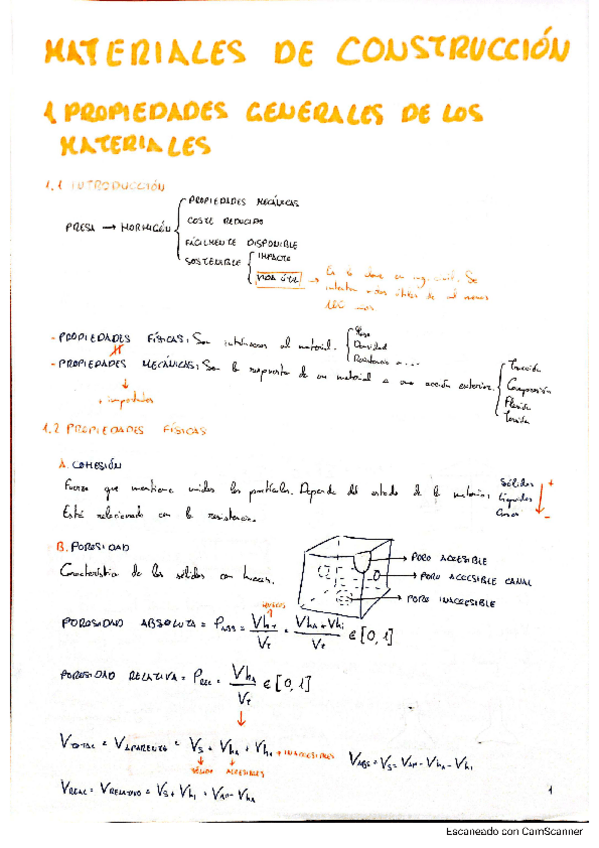 MATERIALES DE CONSTRUCCIÓN
1 PROPIEDADES GENERALES DE LOS
MATERIALES
1.1 INTRODUCCIÓN
PRESA → HORMIGÓN
PROPIEDADES MECÁNICAS
COSTE REDUCIDO
FÁCILMENTE DISPONIBLE
SOSTENIBLE
IMPACTO
VIDA ÚTIL → Es la clave en ing. civil. Se
de al menos
100 años
- PROPIEDADES FÍSICAS: Son intrínsecas al material.
Peso
Densidad
Resistencia a...
- PROPIEDADES MECÁNICAS: Son la respuesta de un material a una acción exterior.
Tracción
Compresión
Flexión
Torsión
+ importantes
1.2 PROPIEDADES FÍSICAS
A. COHESIÓN
Fuerza que mantiene unidas las partículas. Depende del estado de la materia:
Sólidos +
Líquidos
Gases -
Está relacionado con la resistencia.
B. POROSIDAD
Característica de los sólidos con huecos.
PORO ACCESIBLE
PORO ACCESIBLE CANAL
PORO INACCESIBLE
HUECOS
POROSIDAD ABSOLUTA = PABS = VhT/VT = VhA + Vhi/VT ∈ [0,1]
POROSIDAD RELATIVA = PREL = VhA/VT ∈ [0,1]
VTOTAL = VAPARENTE = VS + VhA + Vhi → INACCESIBLES
SÓLIDO ACCESIBLES
VABS = VS = VAP - VhA - Vhi
VREAL = VRELATIVO = VS + Vhi = VAP - VhA
1
Escaneado con CamScanner